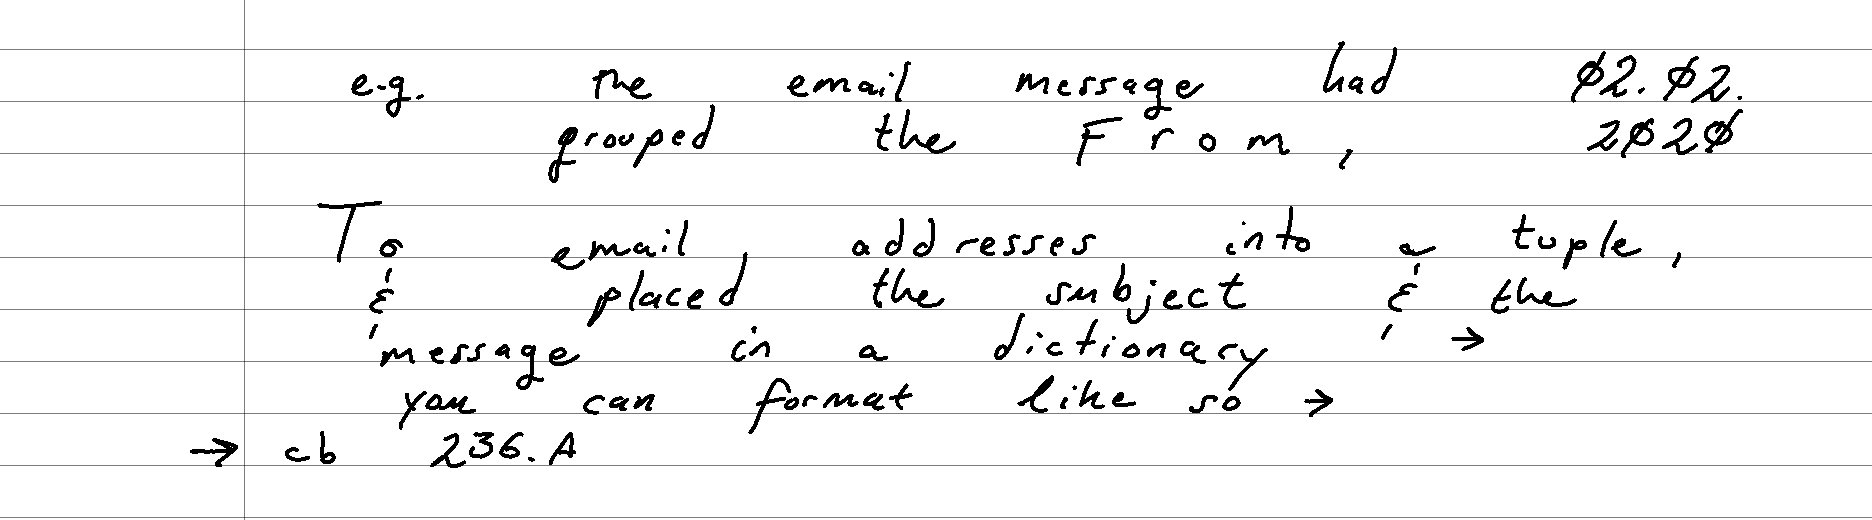 e.g. the email message had ø2.ø2.
grouped the From, 2ø2ø
To email addresses into a tuple,
& placed the subject & the
message in a dictionary →
you can format like so →
→ cb 236.A